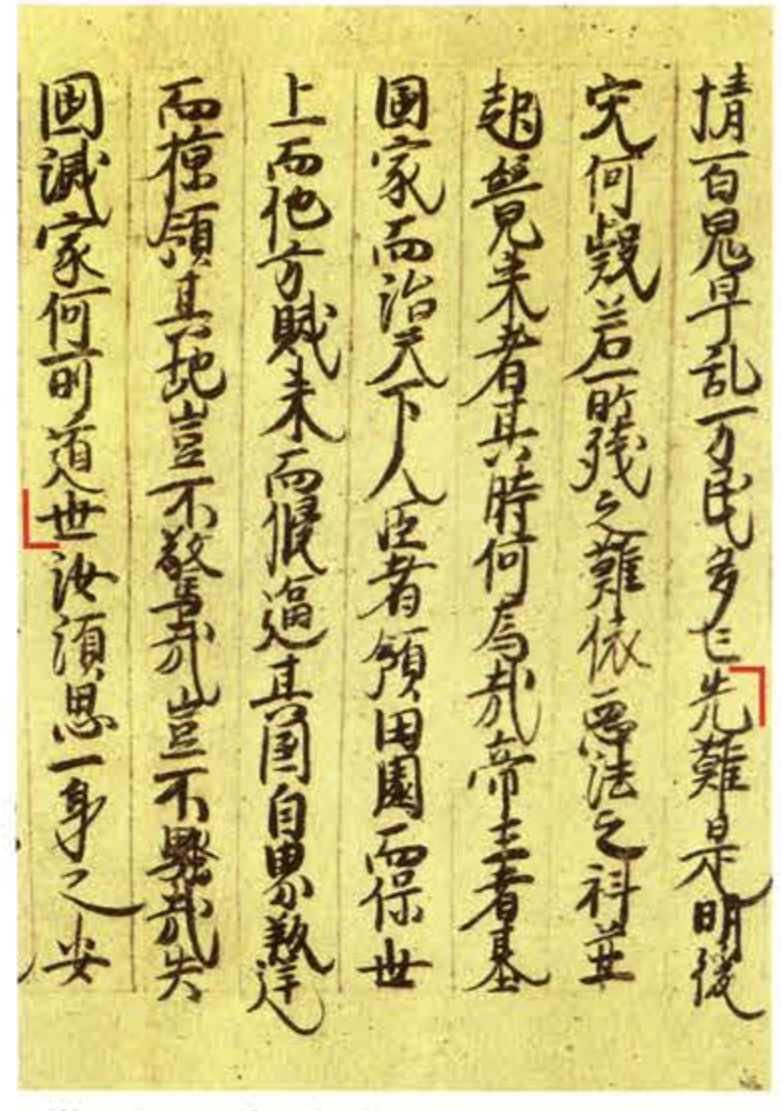 情一百鬼早乱万民多亡先難是明後
灾何疑若所残之難依悪法之科並
起競来者其時何為哉帝王者基
国家而治天下人臣者領田園而保世
上而他方賊来而侵逼其国自界叛逆
而掠領其地豈不驚哉豈不騒哉失
国滅家何所遁世汝須思一身之安